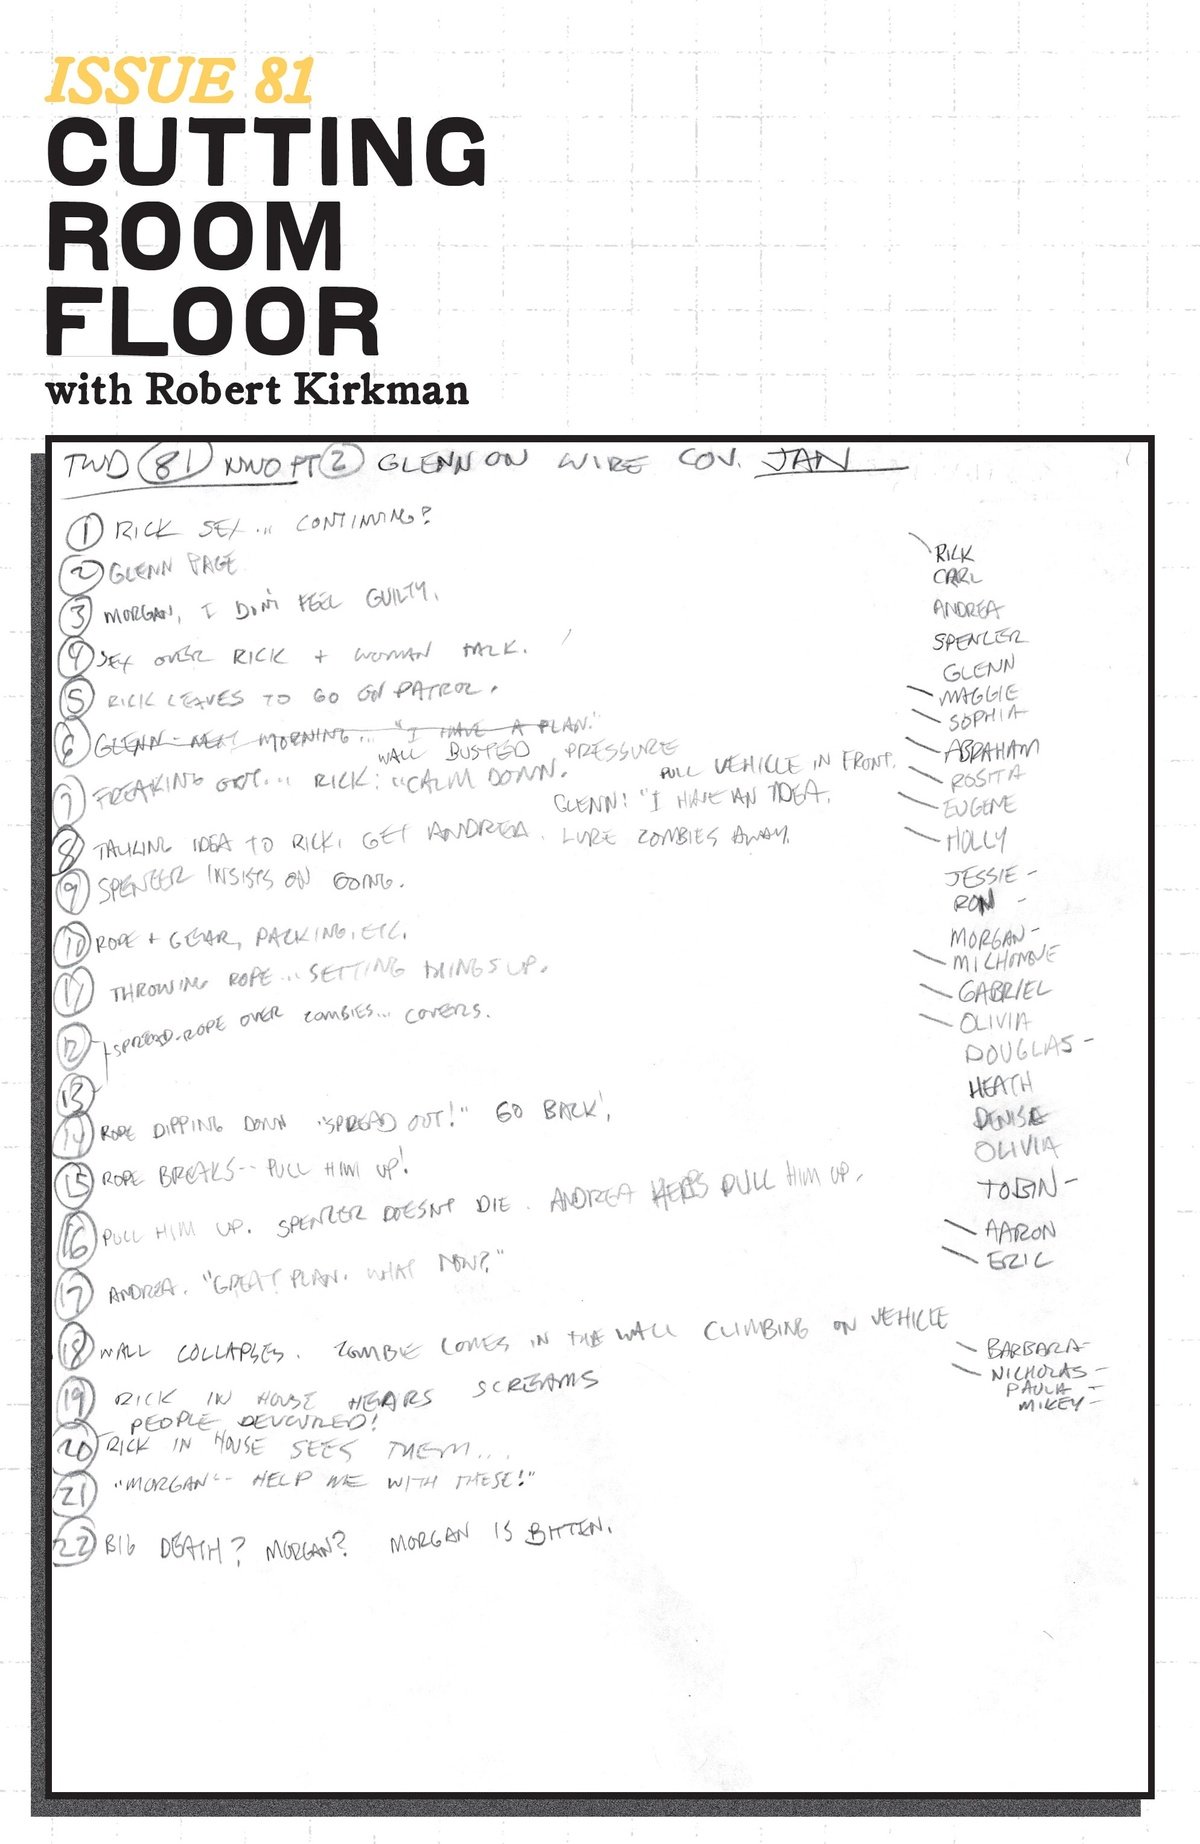 ISSUE 81
CUTTING
ROOM
FLOOR
with Robert Kirkman
TWD 81 NWO PT 2 GLENN ON WIRE COV. JAN
1 RICK SEX... CONTINUING?
2 GLENN PAGE
3 MORGAN, I DON'T FEEL GUILTY.
4 SEX OVER RICK + WOMAN TALK.
5 RICK LEAVES TO GO ON PATROL.
6 GLENN- NEXT MORNING... "I HAVE A PLAN."
WALL BUSTED PRESSURE
7 FREAKING OUT... RICK: "CALM DOWN. PULL VEHICLE IN FRONT.
GLENN: "I HAVE AN IDEA.
8 TALKING IDEA TO RICK, GET ANDREA. LURE ZOMBIES AWAY.
9 SPENCER INSISTS ON GOING.
10 ROPE + GEAR, PACKING, ETC.
11 THROWING ROPE... SETTING THINGS UP.
12 SPREAD-ROPE OVER ZOMBIES... COVERS.
13
14 ROPE DIPPING DOWN "SPREAD OUT!" GO BACK!
15 ROPE BREAKS-- PULL HIM UP!
16 PULL HIM UP. SPENCER DOESN'T DIE. ANDREA HELPS PULL HIM UP.
17 ANDREA. "GREAT PLAN. WHAT NOW?"
18 WALL COLLAPSES. ZOMBIE COMES IN THE WALL CLIMBING ON VEHICLE
19 RICK IN HOUSE HEARS SCREAMS
PEOPLE DEVOURED!
20 RICK IN HOUSE SEES THEM...
21 "MORGAN-- HELP ME WITH THESE!"
22 BIG DEATH? MORGAN? MORGAN IS BITTEN.
RICK
CARL
ANDREA
SPENCER
GLENN
MAGGIE
SOPHIA
ABRAHAM
ROSITA
EUGENE
HOLLY
JESSIE -
RON -
MORGAN -
MICHONNE
GABRIEL
OLIVIA
DOUGLAS -
HEATH
DENISE
OLIVIA
TOBIN -
AARON
ERIC
BARBARA -
NICHOLAS -
PAULA -
MIKEY -